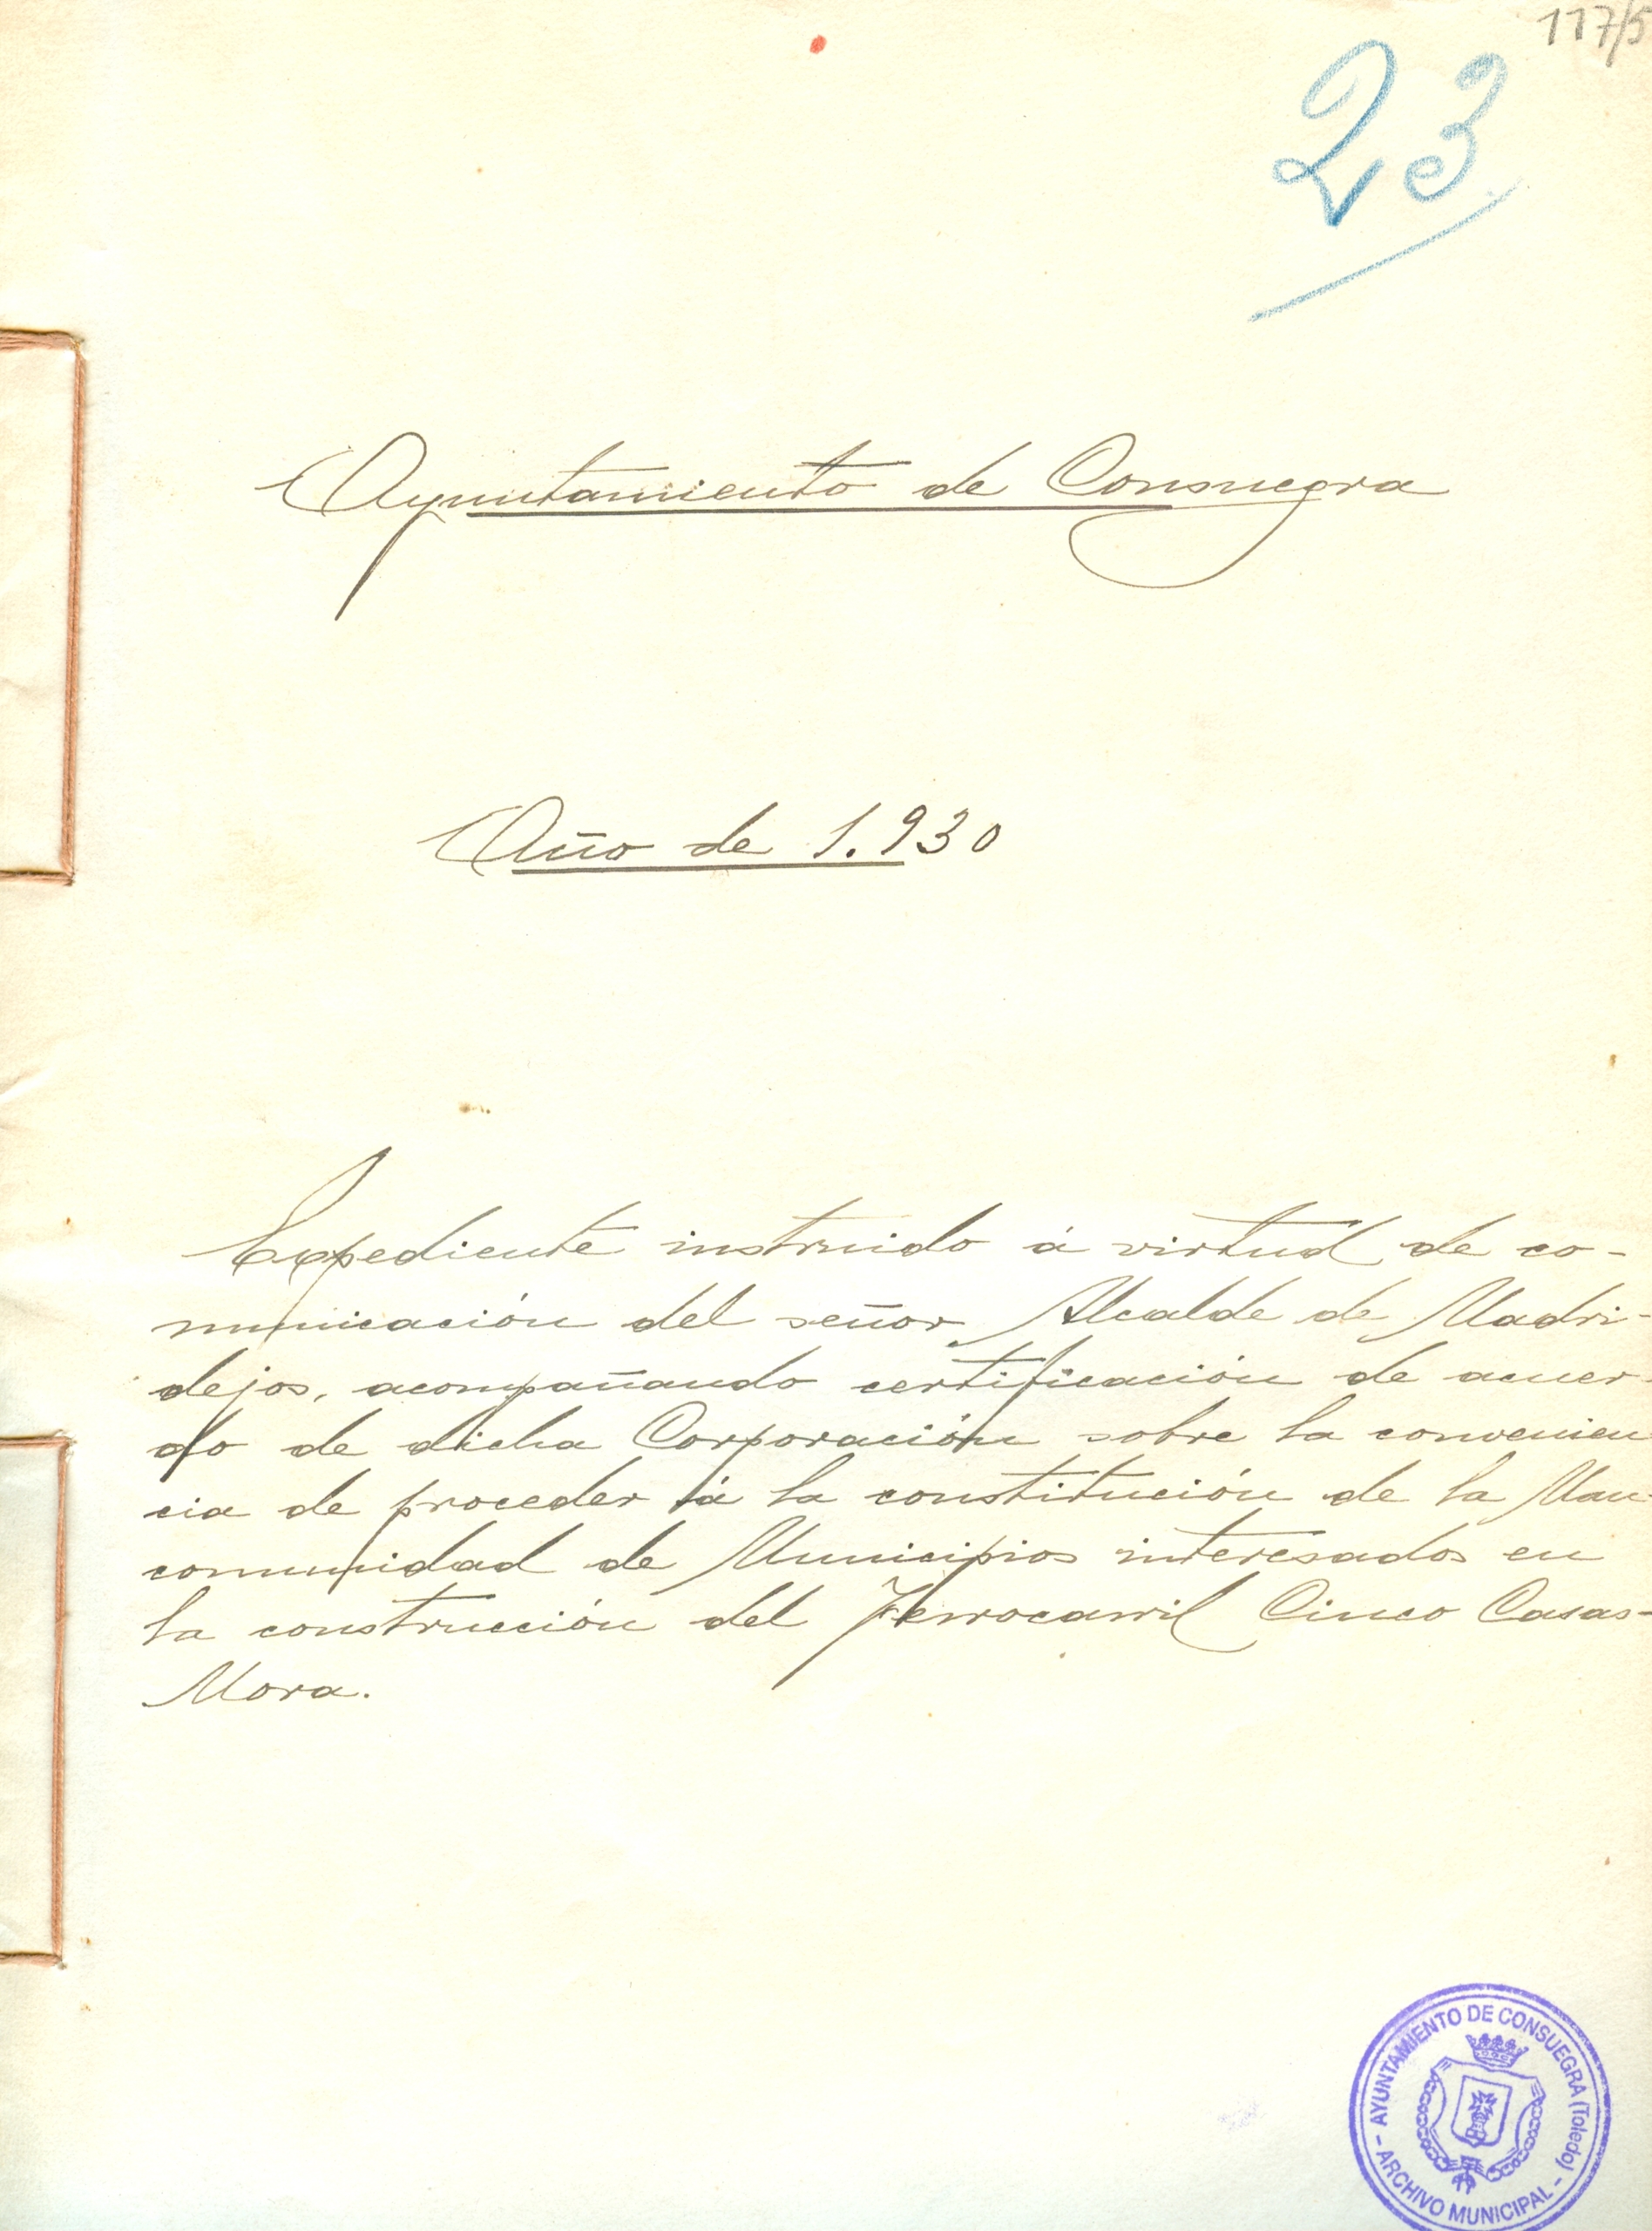 117/5
23
Ayuntamiento de Consuegra
Año de 1.930
Expediente instruido á virtud de co-
municación del señor Alcalde de Madri-
dejos, acompañando certificación de acuer-
do de dicha Corporación sobre la convenien
cia de proceder á la constitución de la Man-
comunidad de Municipios interesados en
la construcción del Ferrocarril Cinco Casas-
Mora.
- AYUNTAMIENTO DE CONSUEGRA (Toledo) -
ARCHIVO MUNICIPAL